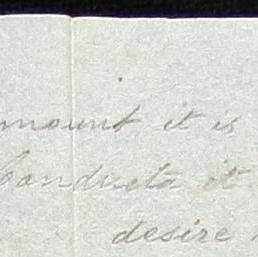 mount it is
Conducta it
desire